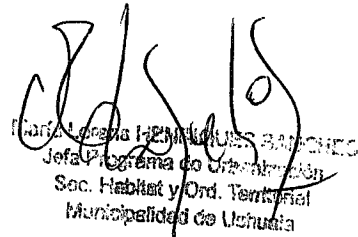 María Lorena HENRIQUES SANCHES
Jefa Programa de Urbanización
Sec. Habitat y Ord. Territorial
Municipalidad de Ushuaia